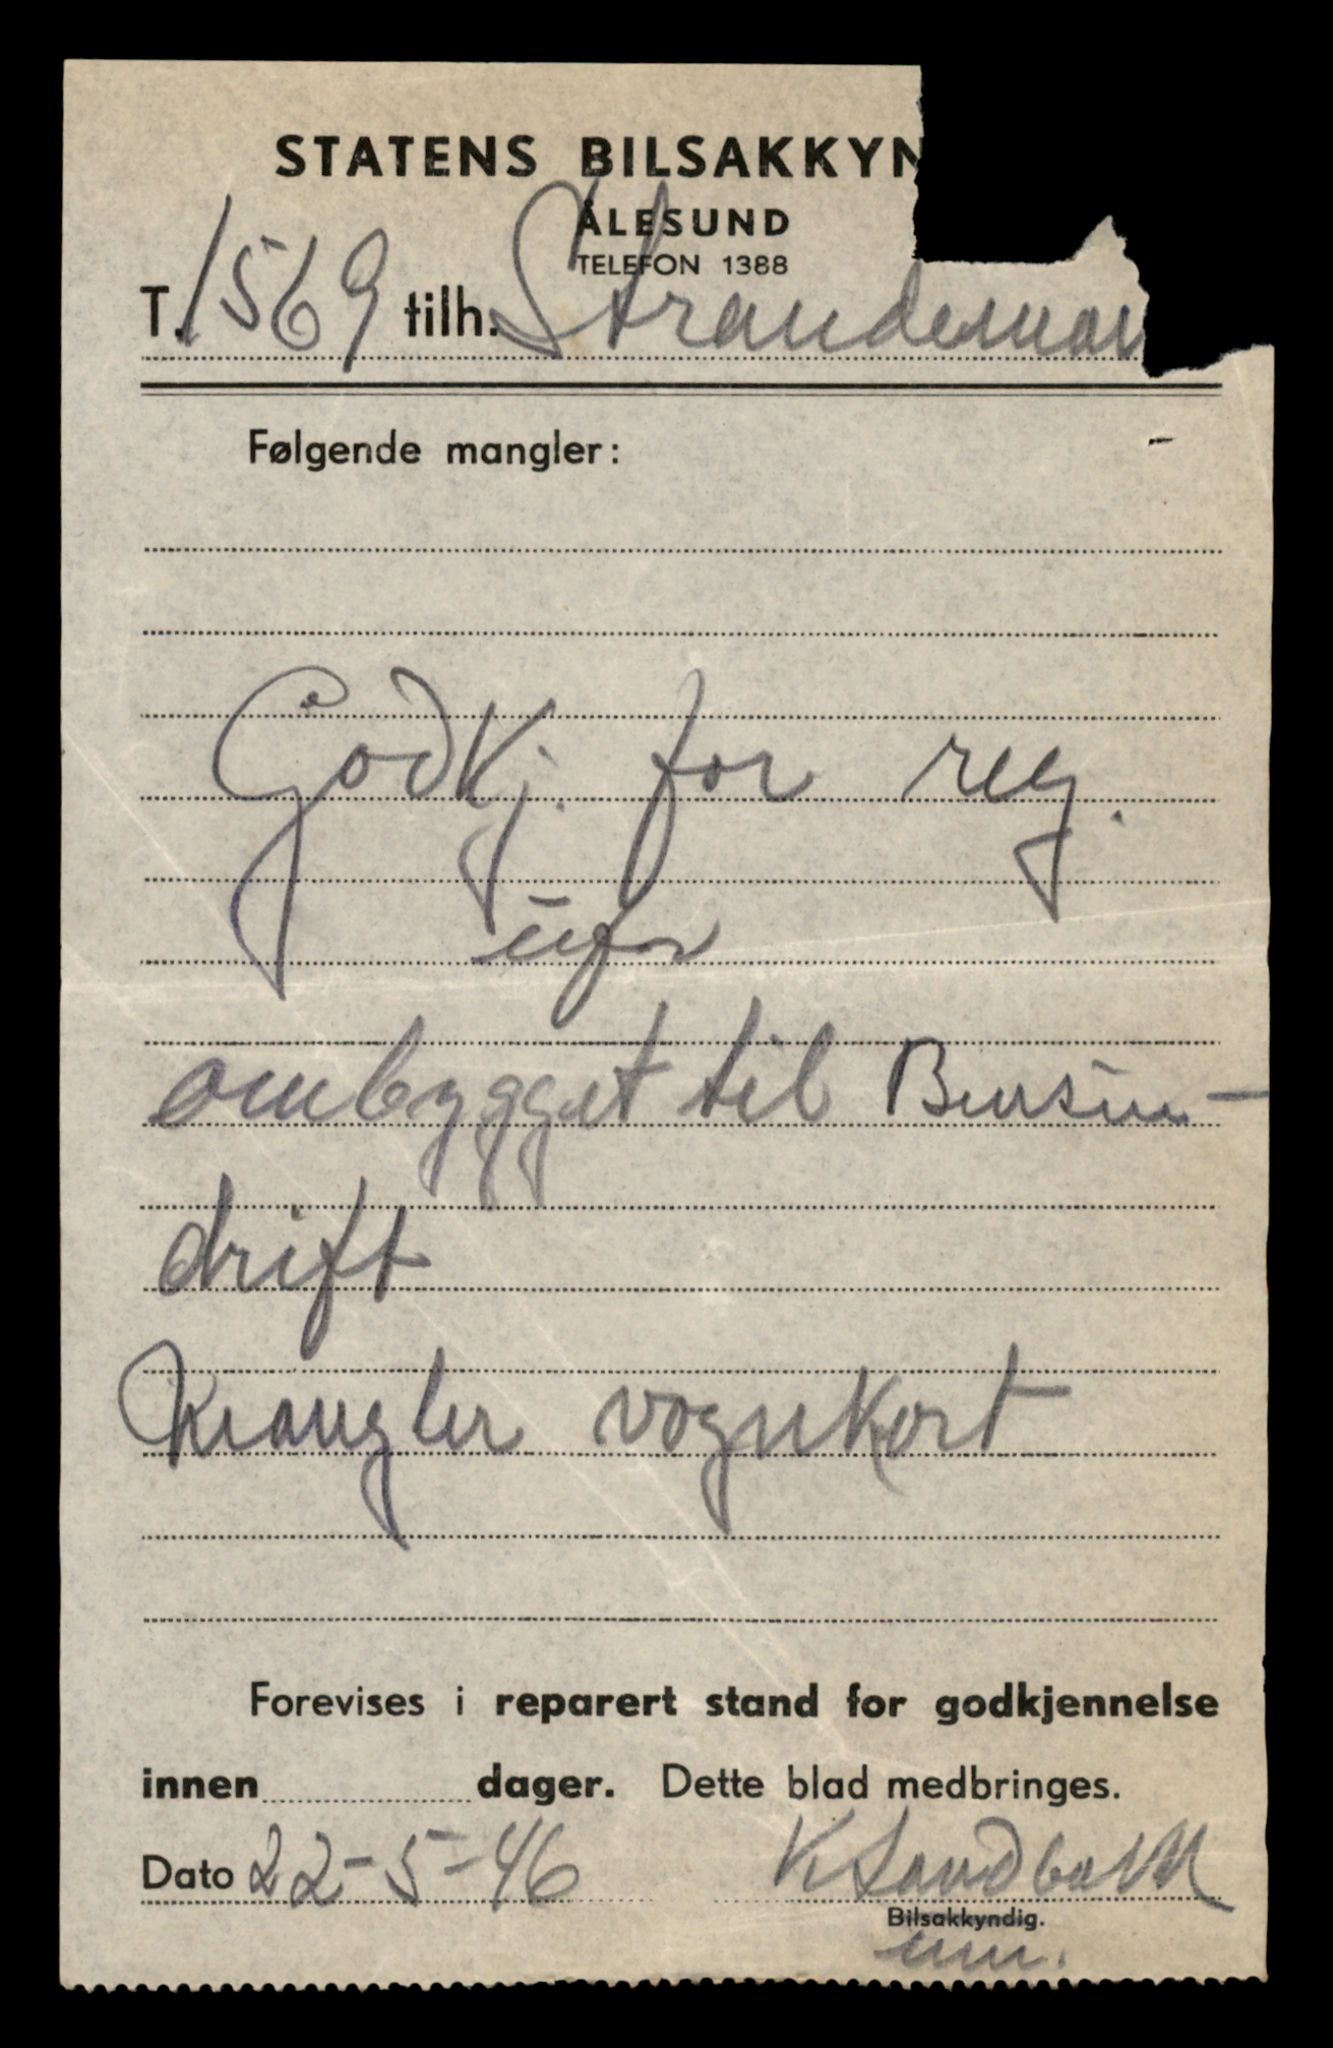 STATENS BILSAKKYN
ÅLESUND
TELEFON 1388
T. 1569 tilh. Strandeman
Følgende mangler:
Godkj. for reg.
ufor
ombygget til Bensin-
drift
Mangler vognkort
Forevises i reparert stand for godkjennelse
innen dager. Dette blad medbringes.
Dato 22-5-46 K Sandbakk
Bilsakkyndig.